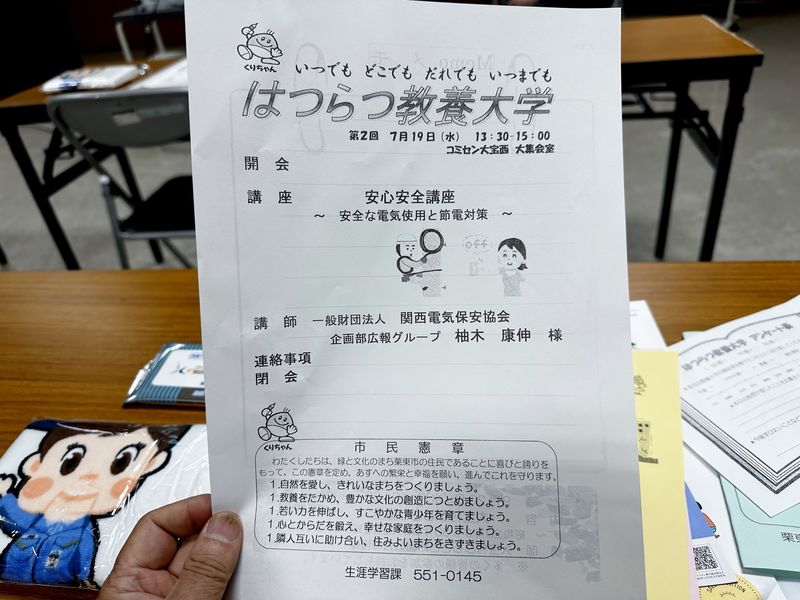 くりちゃん
いつでも どこでも だれでも いつまでも
はつらつ教養大学
第2回 7月19日(水) 13:30-15:00
コミセン大宝西 大集会室
開 会
講 座 安心安全講座
～ 安全な電気使用と節電対策 ～
off
講 師 一般財団法人 関西電気保安協会
企画部広報グループ 柚木 康伸 様
連絡事項
閉 会
くりちゃん
市 民 憲 章
わたくしたちは、緑と文化のまち栗東市の住民であることに喜びと誇りを
もって、この憲章を定め、あすへの繁栄と幸福を願い、進んでこれを守ります。
1.自然を愛し、きれいなまちをつくりましょう。
1.教養をたかめ、豊かな文化の創造につとめましょう。
1.若い力を伸ばし、すこやかな青少年を育てましょう。
1.心とからだを鍛え、幸せな家庭をつくりましょう。
1.隣人互いに助け合い、住みよいまちをきずきましょう。
生涯学習課 551-0145
はつらつ教養大学 アンケート